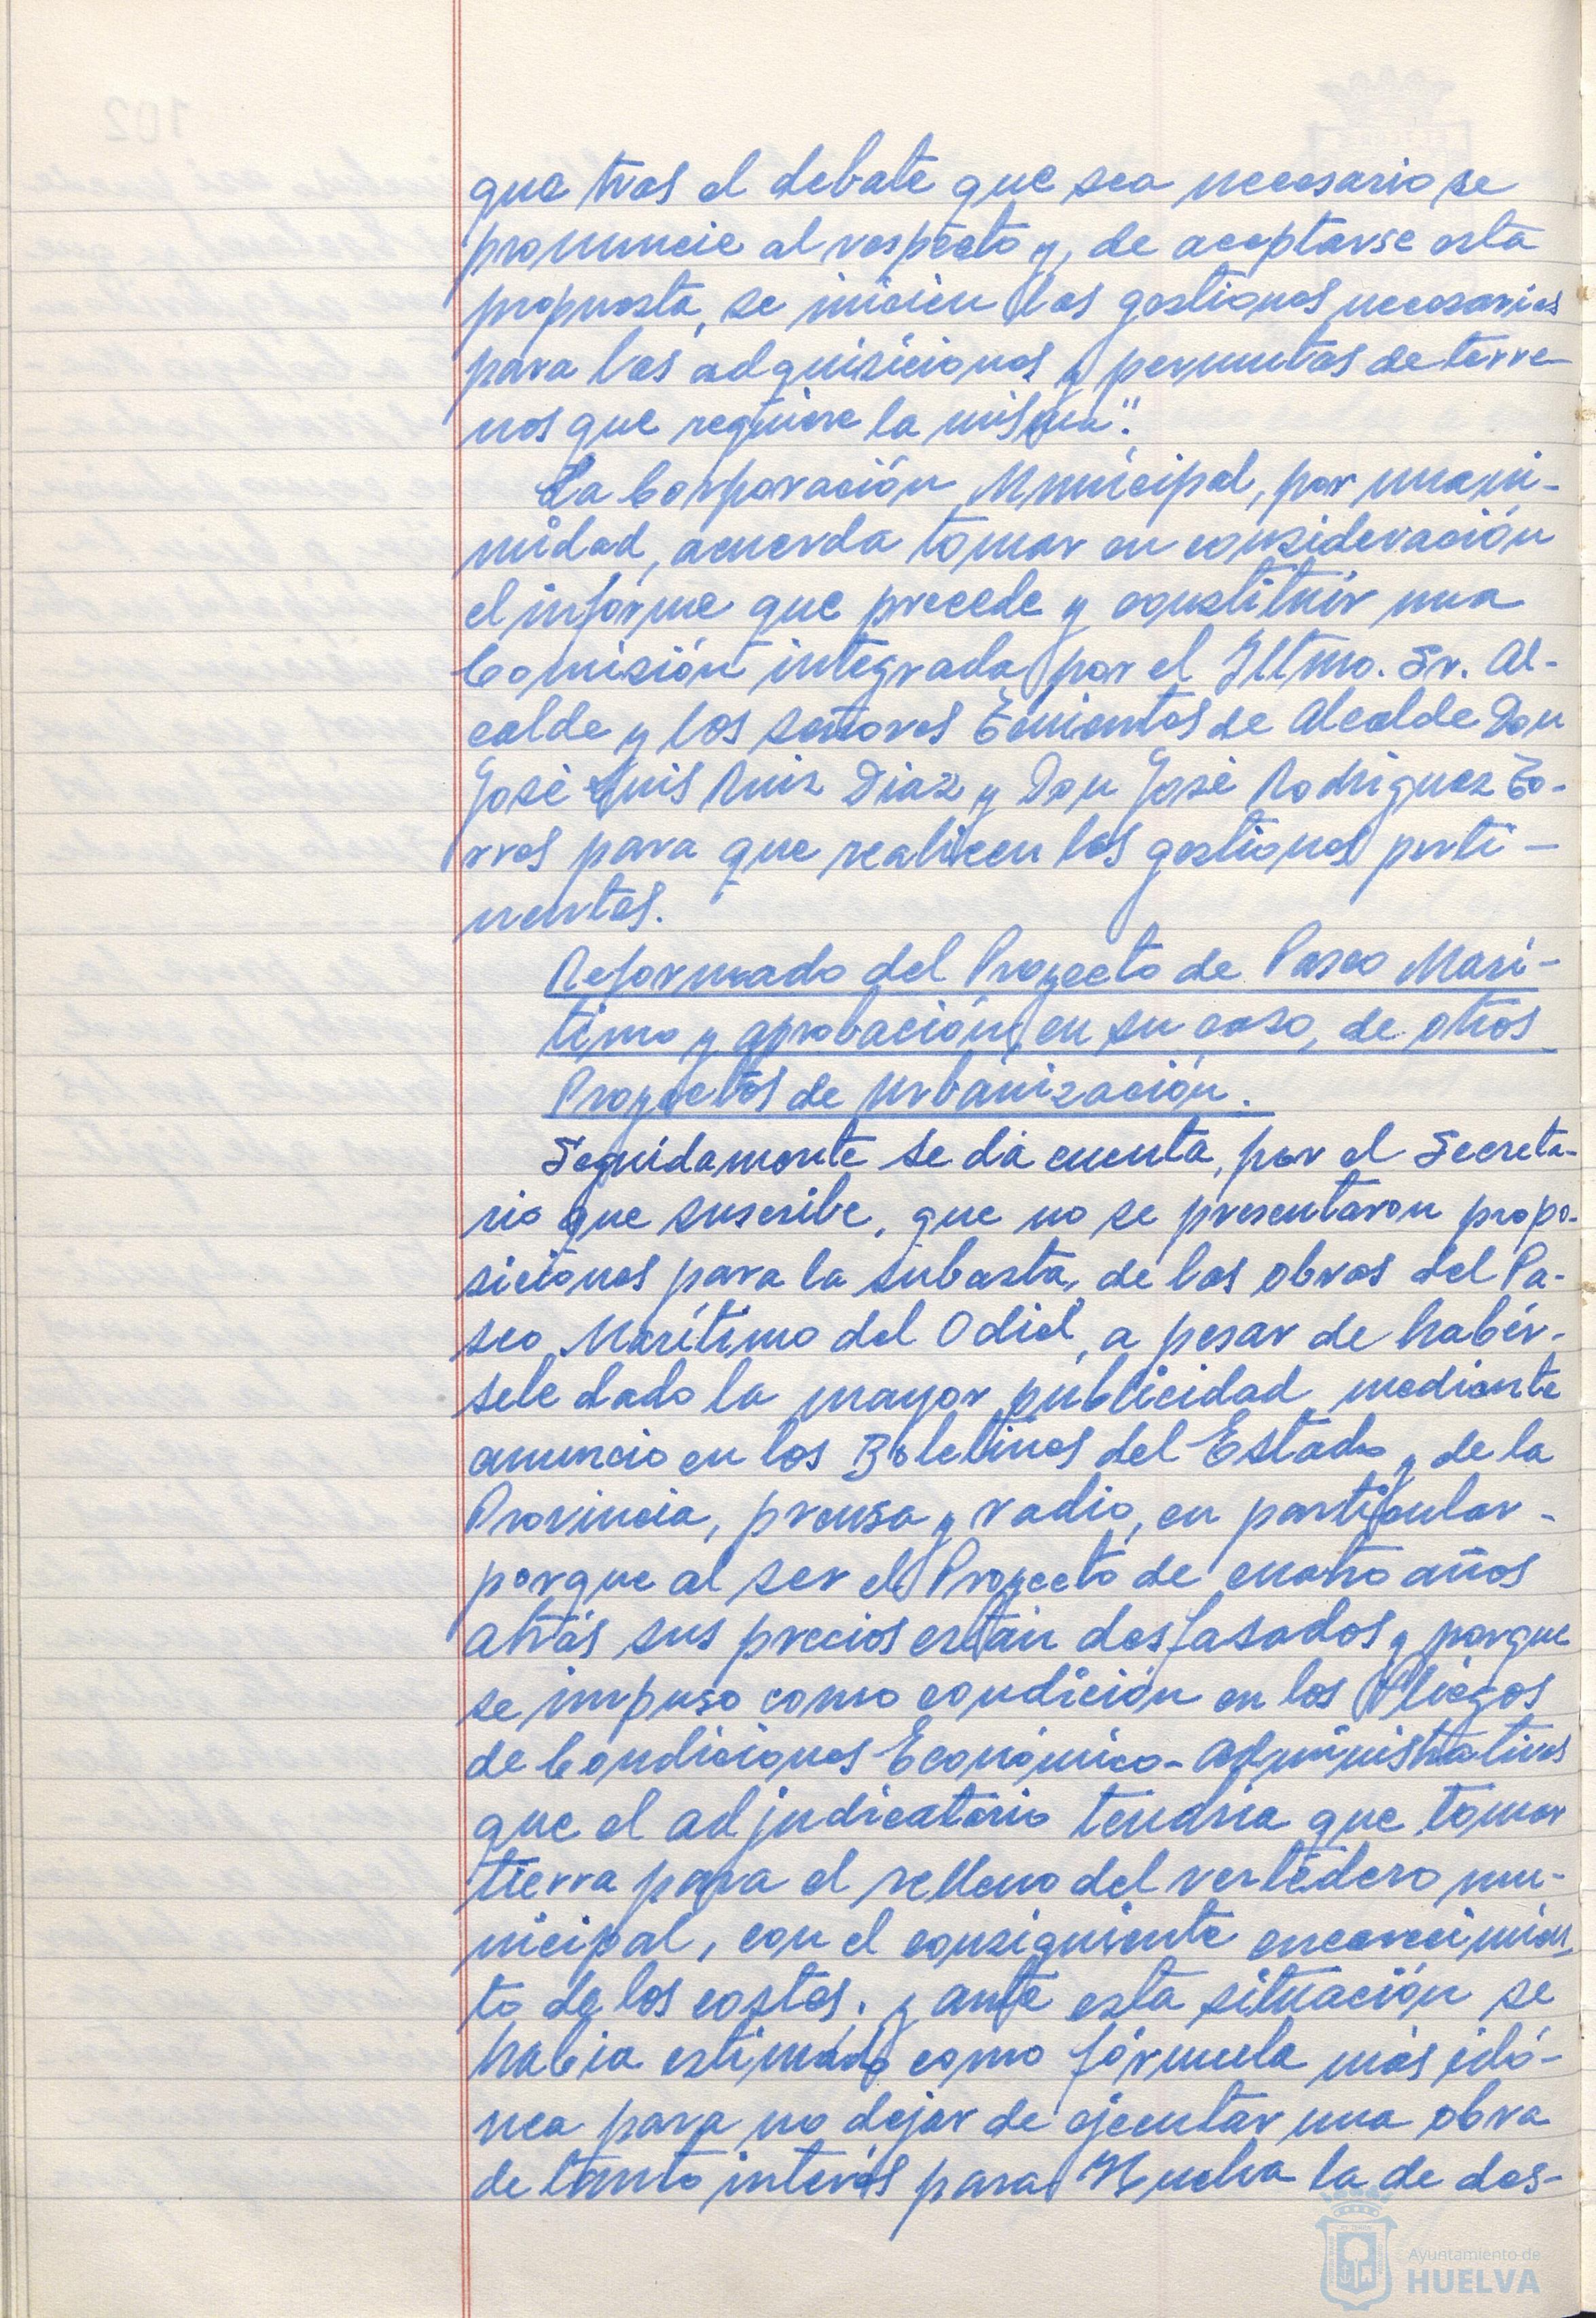 que tras el debate que sea necesario se
pronuncie al respecto y, de aceptarse esta
propuesta, se inicien las gestiones necesarias
para las adquisiciones y permutas de terre-
nos que requiere la misma".
La Corporación Municipal, por unani-
midad, acuerda tomar en consideración
el informe que precede y constituir una
Comisión integrada por el Iltmo. Sr. Al-
calde y los señores Tenientes de Alcalde Don
José Luis Ruiz Diaz y Don José Rodriguez To-
rres para que realicen las gestiones perti-
nentes.
Reformado del Proyecto de Paseo Marí-
timo y aprobación, en su caso, de otros
Proyectos de Urbanización.
Seguidamente se dá cuenta, por el Secreta-
rio que suscribe, que no se presentaron propo-
siciones para la subasta, de las obras del Pa-
seo Marítimo del Odiel, a pesar de habér-
sele dado la mayor publicidad mediante
anuncio en los Boletines del Estado y de la
Provincia, prensa y radio, en particular -
porque al ser el Proyecto de cuatro años
atrás sus precios están desfasados y porque
se impuso como condición en los Pliegos
de Condiciones Económico-Administrativas
que el adjudicatario tendria que tomar
tierra para el relleno del vertedero mu-
nicipal, con el consiguiente encarecimien-
to de los costes. y ante esta situación se
habia estimado como fórmula más idó-
nea para no dejar de ejecutar una obra
de tanto interés para Huelva la de des-
Ayuntamiento de
HUELVA